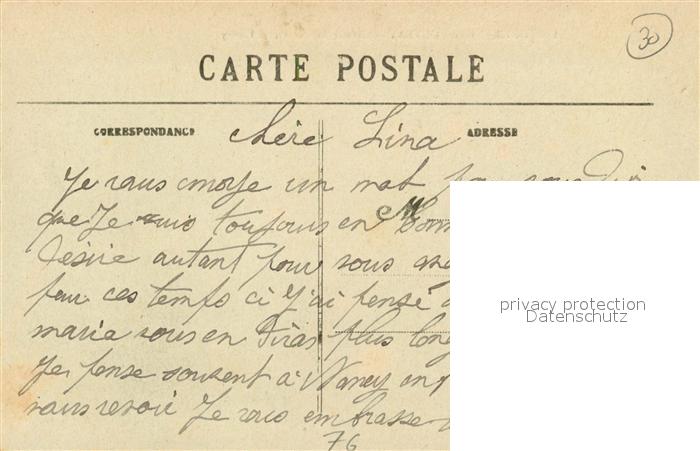 30
CARTE POSTALE
CORRESPONDANCE
chére Lina
ADRESSE
Je vous envoye un mot pour vous dir
que Je suis toujours en bonn
M
désire autant pour vous
par ces temps ci J'ai pensé a
maria vous en diras plus long
Je pense souvent à Nancy en
vous revoir Je vous embrasse
76
privacy protection
Datenschutz